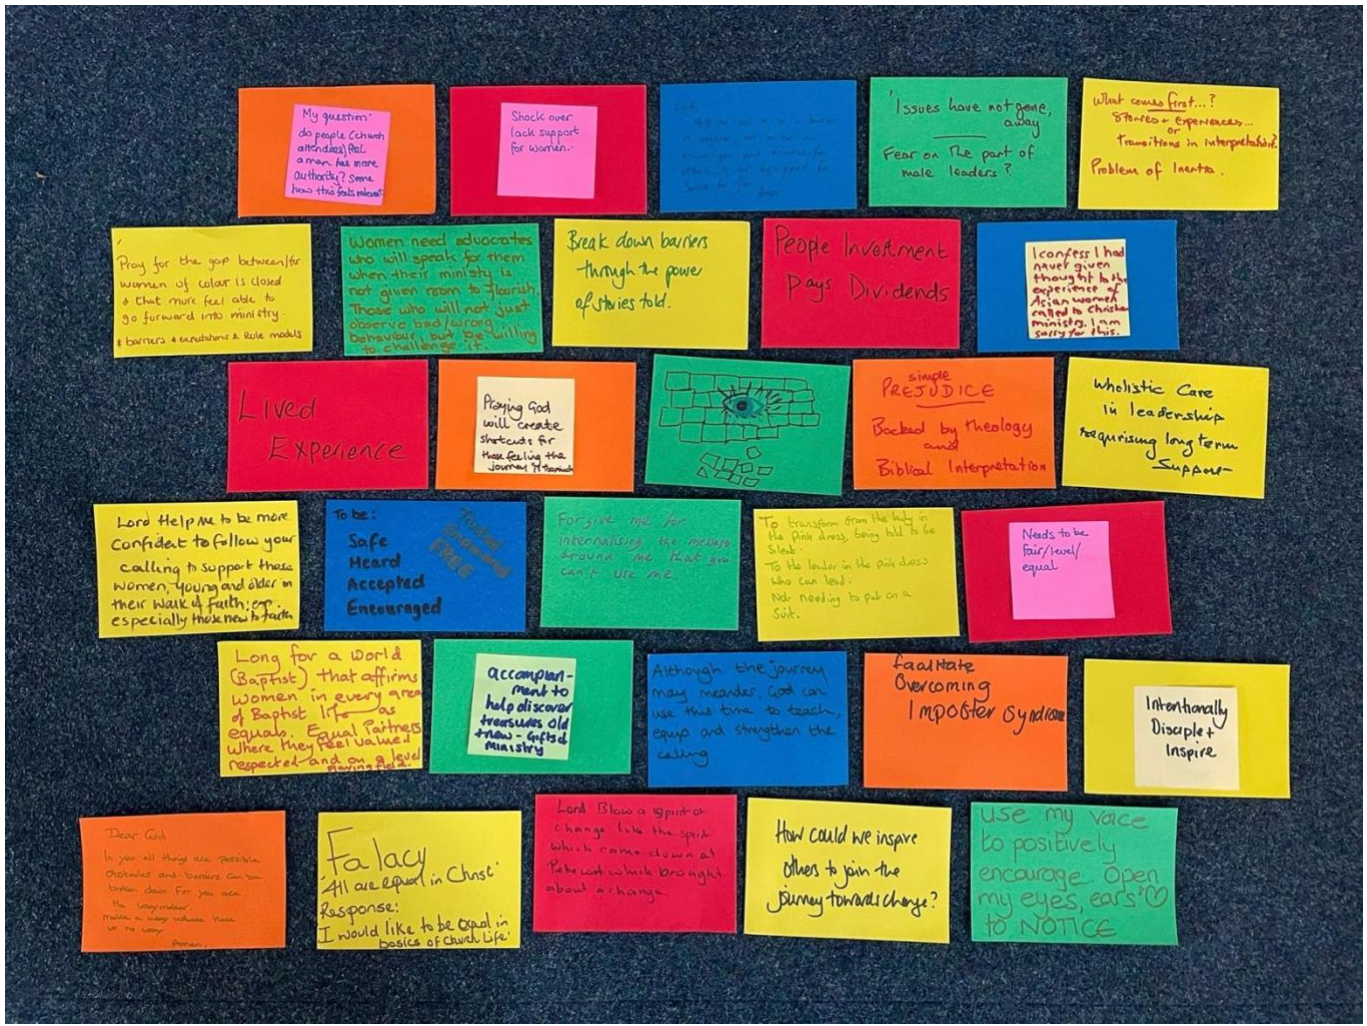 My question:
do people (church
attendees) feel
a man has more
authority? Some
how this feels relevant
Shock over
lack support
for women.
Lord,
Help me not to be a barrier
encourage and
'Issues have not gone,
away
Fear on the part of
male leaders?
What comes first...?
Stories + experiences...
or
Transitions in interpretation?
Problem of Inertia.
Pray for the gap between/for
women of colour is closed
& that more feel able to
go forward into ministry.
& barriers & expectations & Role models
Women need advocates
who will speak for them
when their ministry is
not given room to flourish.
Those who will not just
observe bad/wrong
behaviour, but be willing
to challenge it.
Break down barriers
through the power
of stories told.
People Investment
Pays Dividends
I confess I had
never given
thought to the
experience of
Asian women
called to Christian
ministry. I am
sorry for this.
Lived
Experience
Praying God
will create
shortcuts for
those feeling the
journey is
simple
PREJUDICE
Backed by theology
and
Biblical Interpretation
Wholistic Care
in leadership
requrising long term
Support
Lord Help me to be more
confident to follow your
calling to support those
women, young and older in
their walk of faith, esp
especially those new to faith
To be:
Safe
Heard
Accepted
Encouraged
Trusted
Empowered
FREE
Forgive me for
internalising the message
around me that you
can't use me
To transform from the lady in
the pink dress, being told to be
silent.
To the leader in the pink dress
who can lead.
Not needing to put on a
Suit.
Needs to be
fair/level/
equal
Long for a World
(Baptist) that affirms
women in every area
of Baptist life as
equals. Equal Partners
where they feel valued
respected and on a level
playing field.
accompian-
ment to
help discover
treasures old
+new - Gifts of
ministry
Although the journey
may meander, God can
use this time to teach,
equip and strengthen the
calling
facilitate
Overcoming
Imposter Syndrome
Intentionally
Disciple +
Inspire
Dear God
In you all things are possible
Obstacles and barriers can be
broken down For you are
the waymaker.
make a way where there
is no way
Amen.
Falacy
'All are equal in Christ'
Response:
I would like to be equal in
basics of Church Life'
Lord Blow a spirit of
change like the spirit
which came down at
Pentecost which brought
about a change
How could we inspire
others to join the
journey towards change?
use my voice
to positively
encourage. Open
my eyes, ears + ♡
to NOTICE